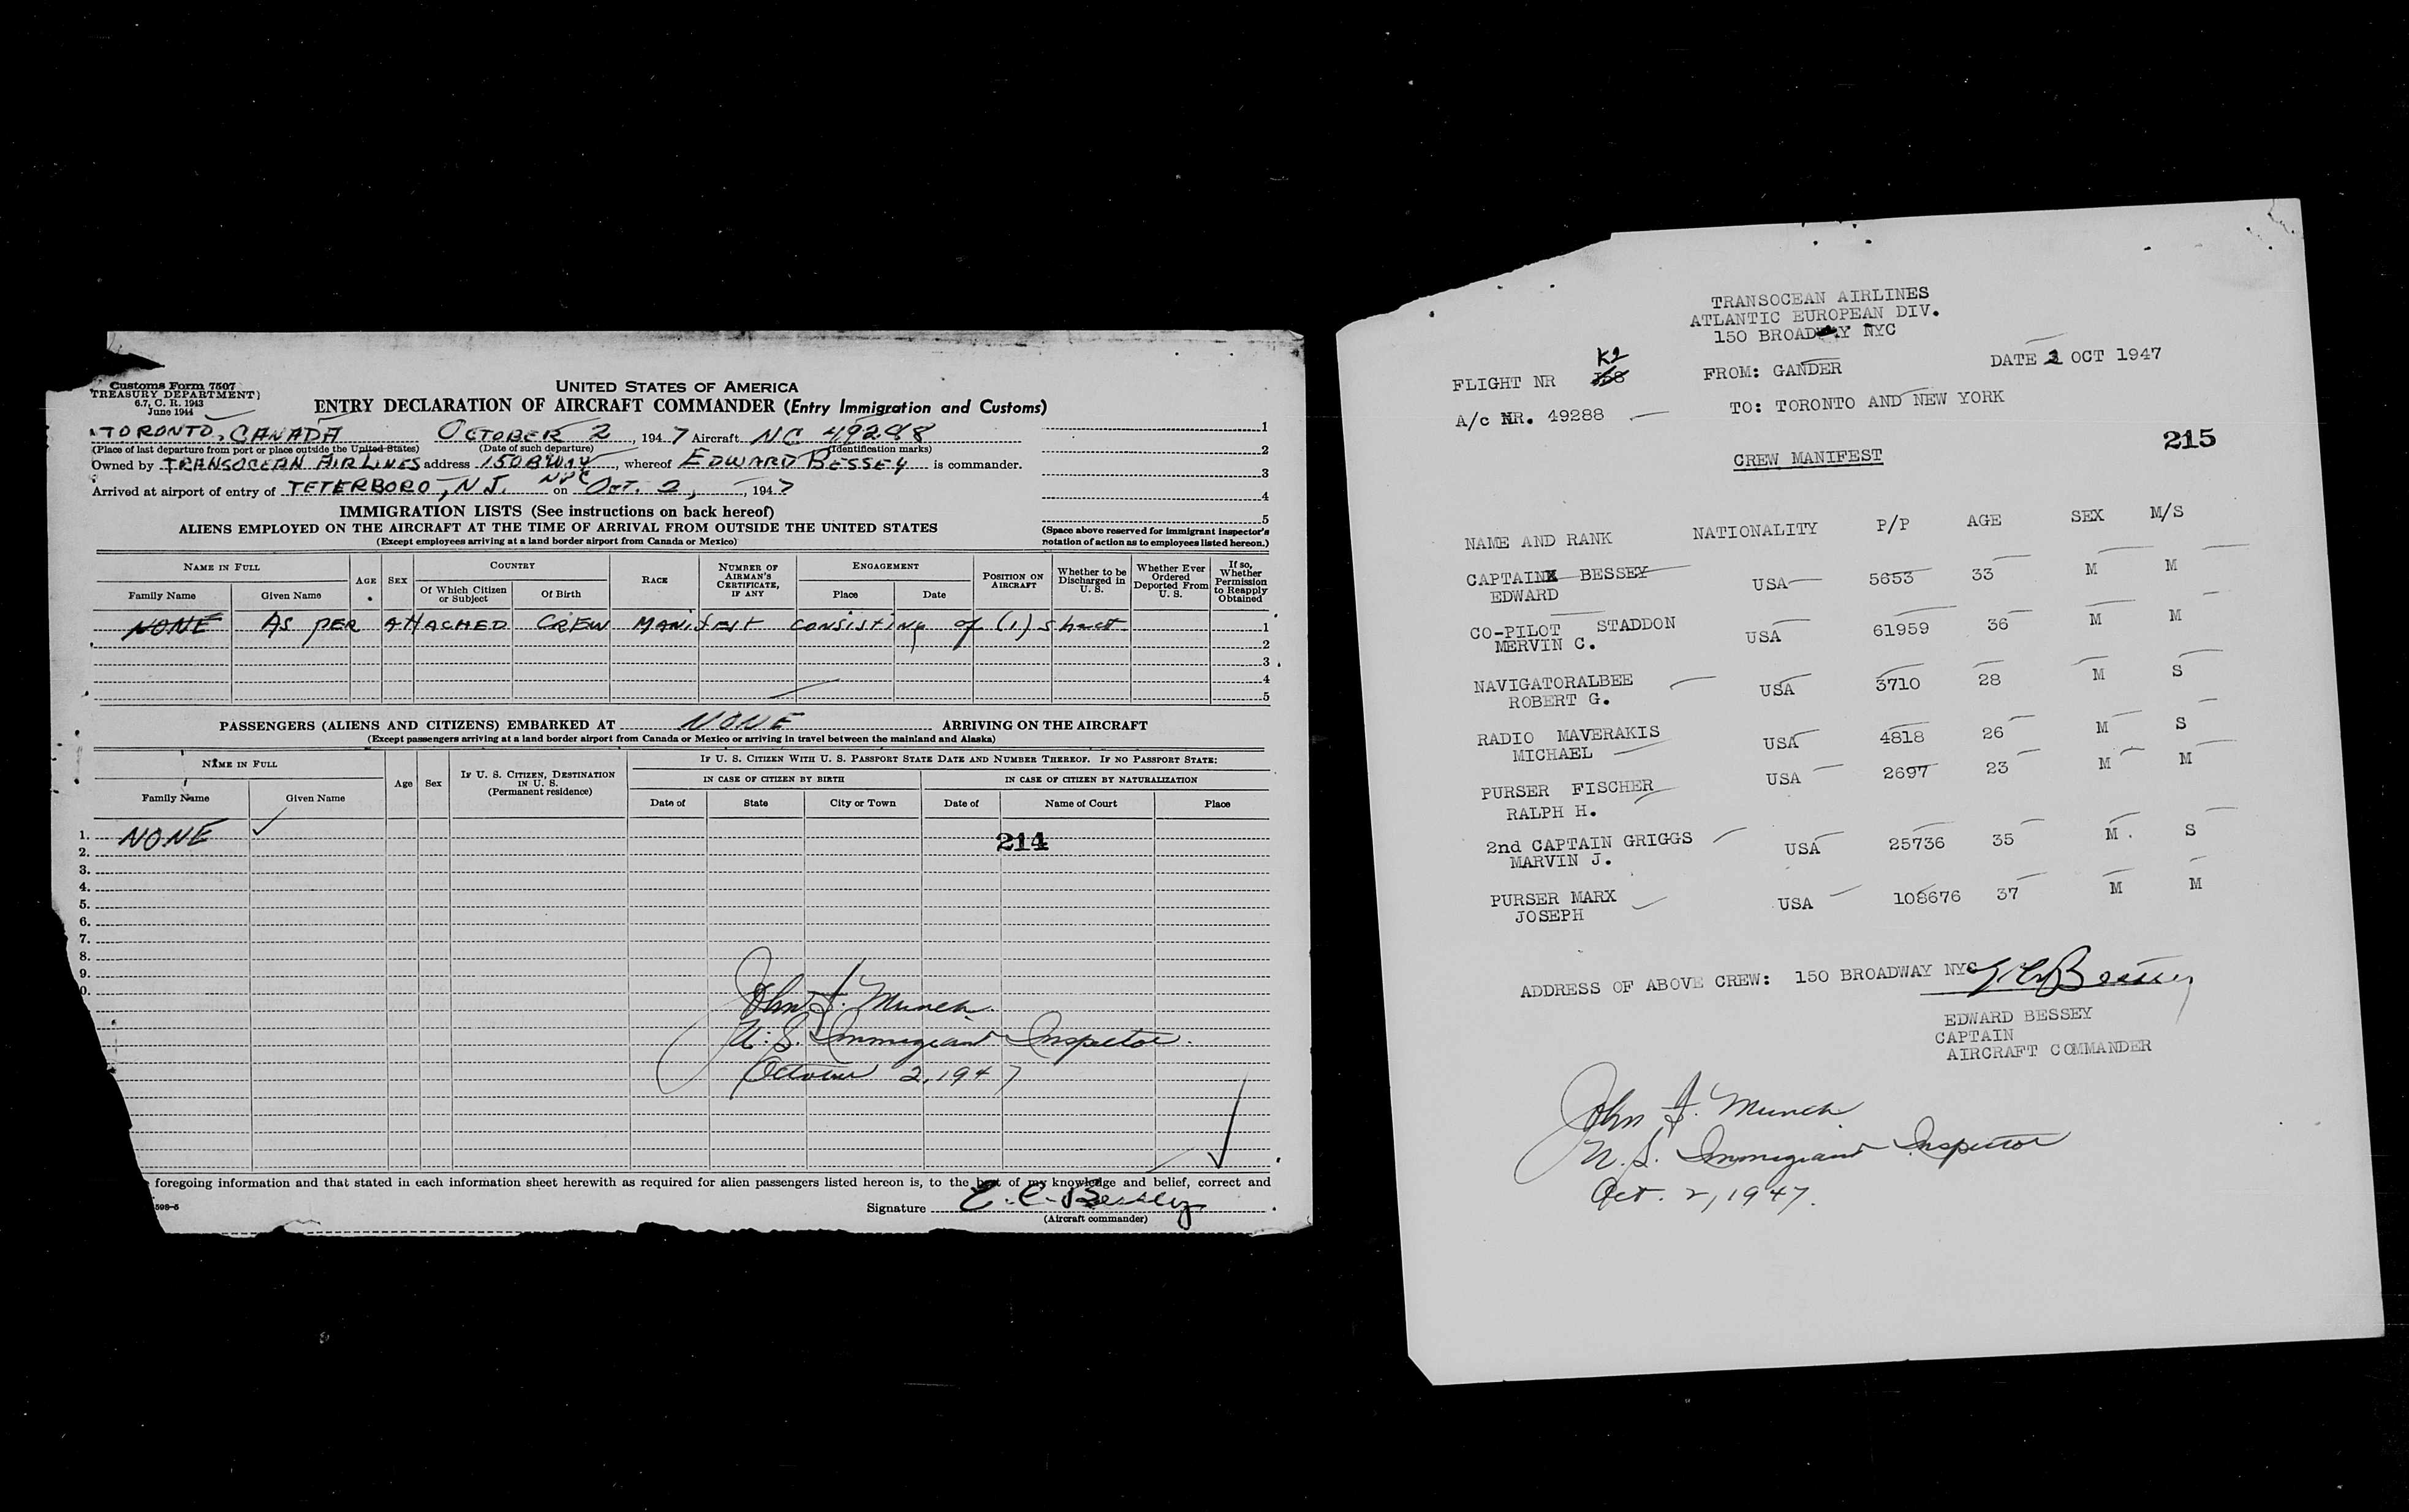 Customs Form 7507
TREASURY DEPARTMENT
6.7, C. R. 1943
June 1944
UNITED STATES OF AMERICA
ENTRY DECLARATION OF AIRCRAFT COMMANDER (Entry Immigration and Customs)
TORONTO, CANADA OCTOBER 2, 1947 Aircraft NC 49288
(Place of last departure from port or place outside the United States) (Date of such departure) (Identification marks)
Owned by TRANSOCEAN AIRLINES address 150 BWAY NYC, whereof EDWARD BESSEY is commander.
Arrived at airport of entry of TETERBORO, N.J. on OCT. 2, 1947
1
2
3
4
5
(Space above reserved for immigrant inspector's
notation of action as to employees listed hereon.)
IMMIGRATION LISTS (See instructions on back hereof)
ALIENS EMPLOYED ON THE AIRCRAFT AT THE TIME OF ARRIVAL FROM OUTSIDE THE UNITED STATES
(Except employees arriving at a land border airport from Canada or Mexico)
NAME IN FULL AGE SEX COUNTRY RACE NUMBER OF AIRMAN'S CERTIFICATE, IF ANY ENGAGEMENT POSITION ON AIRCRAFT Whether to be Discharged in U. S. Whether Ever Ordered Deported From U. S. If so, Whether Permission to Reapply Obtained
Family Name Given Name Of Which Citizen or Subject Of Birth Place Date
NONE AS PER ATTACHED CREW MANIFEST CONSISTING of (1) sheet 1
2
3
4
5
PASSENGERS (ALIENS AND CITIZENS) EMBARKED AT NONE ARRIVING ON THE AIRCRAFT
(Except passengers arriving at a land border airport from Canada or Mexico or arriving in travel between the mainland and Alaska)
NAME IN FULL Age Sex IF U. S. CITIZEN, DESTINATION IN U. S. (Permanent residence) IF U. S. CITIZEN WITH U. S. PASSPORT STATE DATE AND NUMBER THEREOF. IF NO PASSPORT STATE:
IN CASE OF CITIZEN BY BIRTH IN CASE OF CITIZEN BY NATURALIZATION
Family Name Given Name Date of State City or Town Date of Name of Court Place
1. NONE 214
2.
3.
4.
5.
6.
7.
8.
9.
0.
John F. Munch
U. S. Immigrant Inspector.
October 2, 1947
foregoing information and that stated in each information sheet herewith as required for alien passengers listed hereon is, to the best of my knowledge and belief, correct and
598-5
Signature E. C. Bessey
(Aircraft commander)
TRANSOCEAN AIRLINES
ATLANTIC EUROPEAN DIV.
150 BROADWAY NYC
K2
FLIGHT NR 158 FROM: GANDER DATE 2 OCT 1947
A/c NR. 49288 TO: TORONTO AND NEW YORK
215
CREW MANIFEST
NAME AND RANK NATIONALITY P/P AGE SEX M/S
CAPTAIN BESSEY USA 5653 33 M M
EDWARD
CO-PILOT STADDON USA 61959 36 M M
MERVIN C.
NAVIGATORALBEE USA 3710 28 M S
ROBERT G.
RADIO MAVERAKIS USA 4818 26 M S
MICHAEL
PURSER FISCHER USA 2697 23 M M
RALPH H.
2nd CAPTAIN GRIGGS USA 25736 35 M. S
MARVIN J.
PURSER MARX USA 108676 37 M M
JOSEPH
ADDRESS OF ABOVE CREW: 150 BROADWAY NYC E C Bessey
EDWARD BESSEY
CAPTAIN
AIRCRAFT COMMANDER
John F. Munch
U. S. Immigrant Inspector
Oct. 2, 1947.